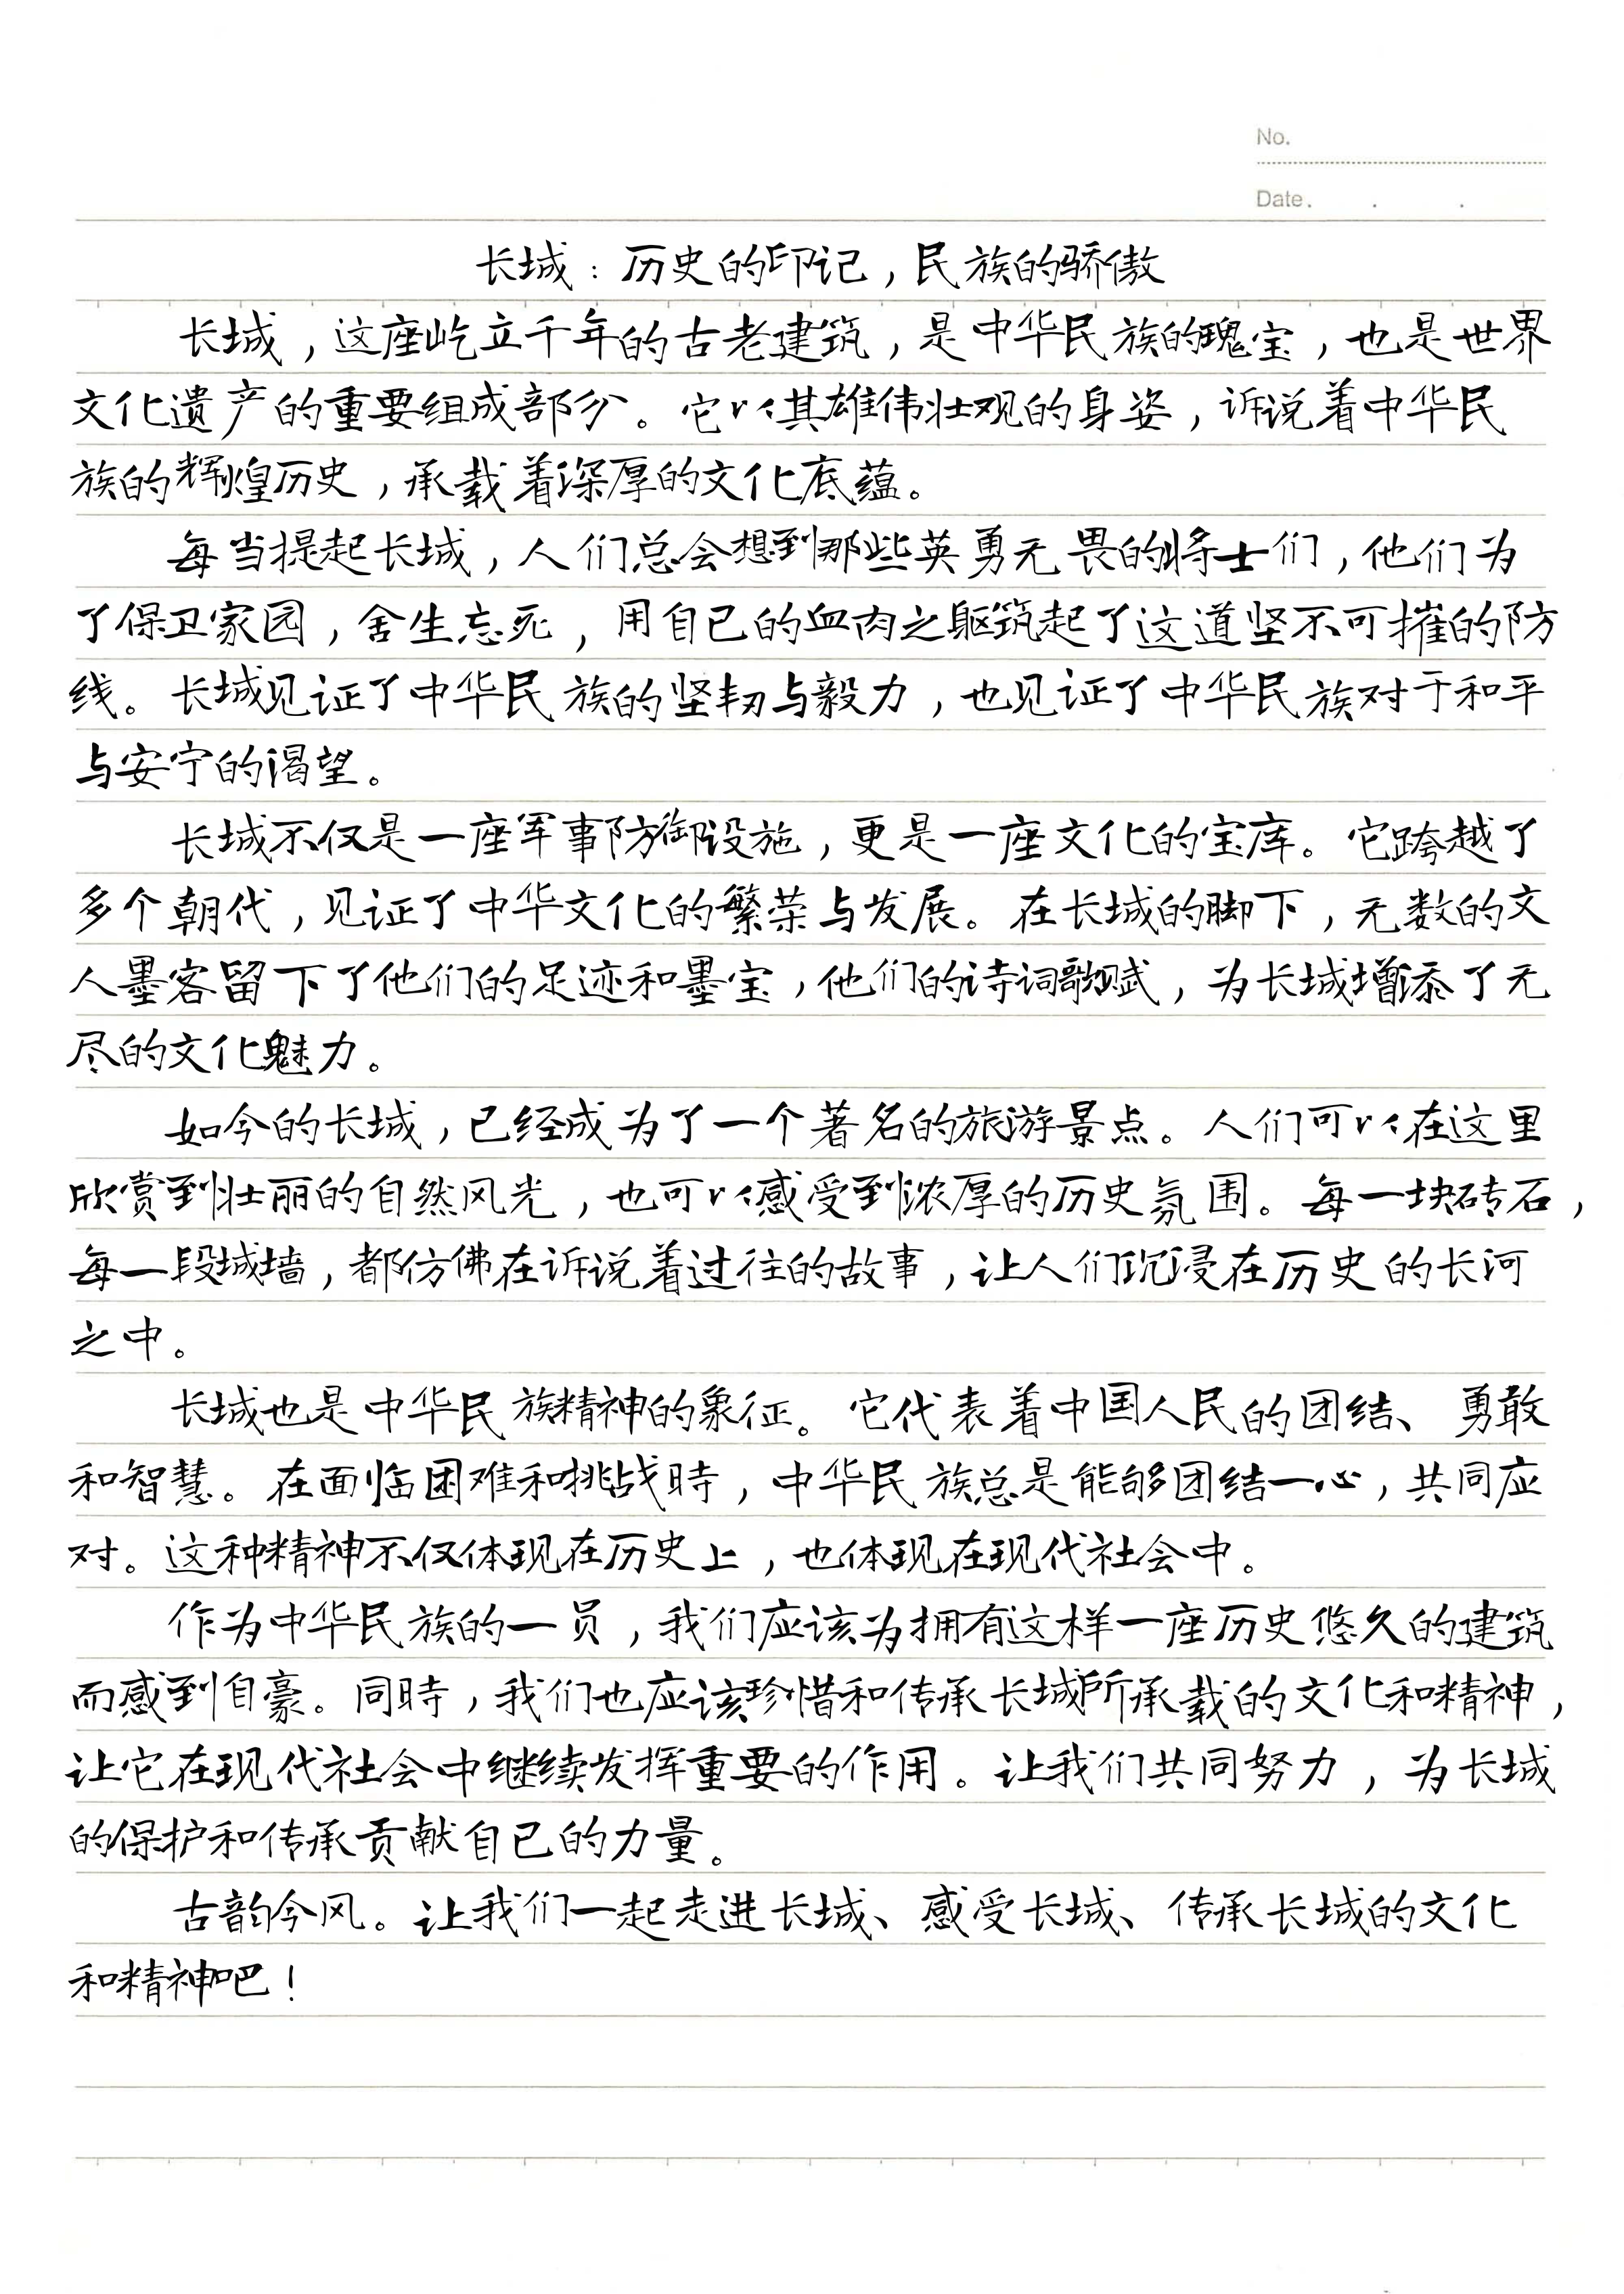 No.
Date.
长城：历史的印记，民族的骄傲
长城，这座屹立千年的古老建筑，是中华民族的瑰宝，也是世界
文化遗产的重要组成部分。它以其雄伟壮观的身姿，诉说着中华民
族的辉煌历史，承载着深厚的文化底蕴。
每当提起长城，人们总会想到那些英勇无畏的将士们，他们为
了保卫家园，舍生忘死，用自己的血肉之躯筑起了这道坚不可摧的防
线。长城见证了中华民族的坚韧与毅力，也见证了中华民族对于和平
与安宁的渴望。
长城不仅是一座军事防御设施，更是一座文化的宝库。它跨越了
多个朝代，见证了中华文化的繁荣与发展。在长城的脚下，无数的文
人墨客留下了他们的足迹和墨宝，他们的诗词歌赋，为长城增添了无
尽的文化魅力。
如今的长城，已经成为了一个著名的旅游景点。人们可以在这里
欣赏到壮丽的自然风光，也可以感受到浓厚的历史氛围。每一块砖石，
每一段城墙，都仿佛在诉说着过往的故事，让人们沉浸在历史的长河
之中。
长城也是中华民族精神的象征。它代表着中国人民的团结、勇敢
和智慧。在面临困难和挑战時，中华民族总是能够团结一心，共同应
对。这种精神不仅体现在历史上，也体现在现代社会中。
作为中华民族的一员，我们应该为拥有这样一座历史悠久的建筑
而感到自豪。同時，我们也应该珍惜和传承长城所承载的文化和精神，
让它在现代社会中继续发挥重要的作用。让我们共同努力，为长城
的保护和传承贡献自己的力量。
古韵今风。让我们一起走进长城、感受长城、传承长城的文化
和精神吧！